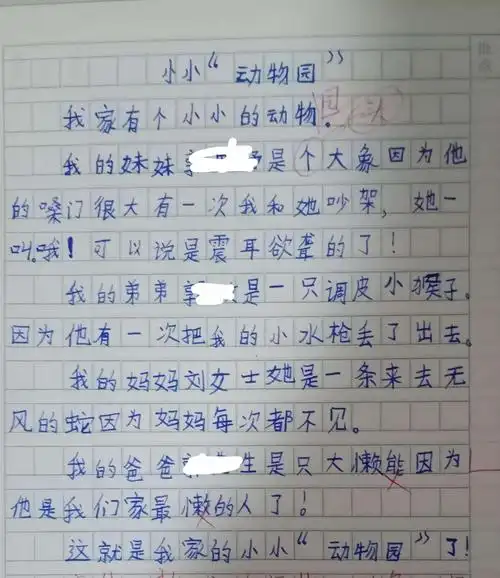 小小“动物园”
我家有个小小的动物.
我的妹妹 是个大象因为他
的嗓门很大有一次我和她吵架，她一
叫。哦！可以说是震耳欲聋的了！
我的弟弟 是一只调皮小猴子.
因为他有一次把我的小水枪丢了出去。
我的妈妈刘女士她是一条来去无
风的蛇因为妈妈每次都不见。
我的爸爸 生是只大懒能因为
他是我们家最懒的人了！
这就是我家的小小“动物园”了！